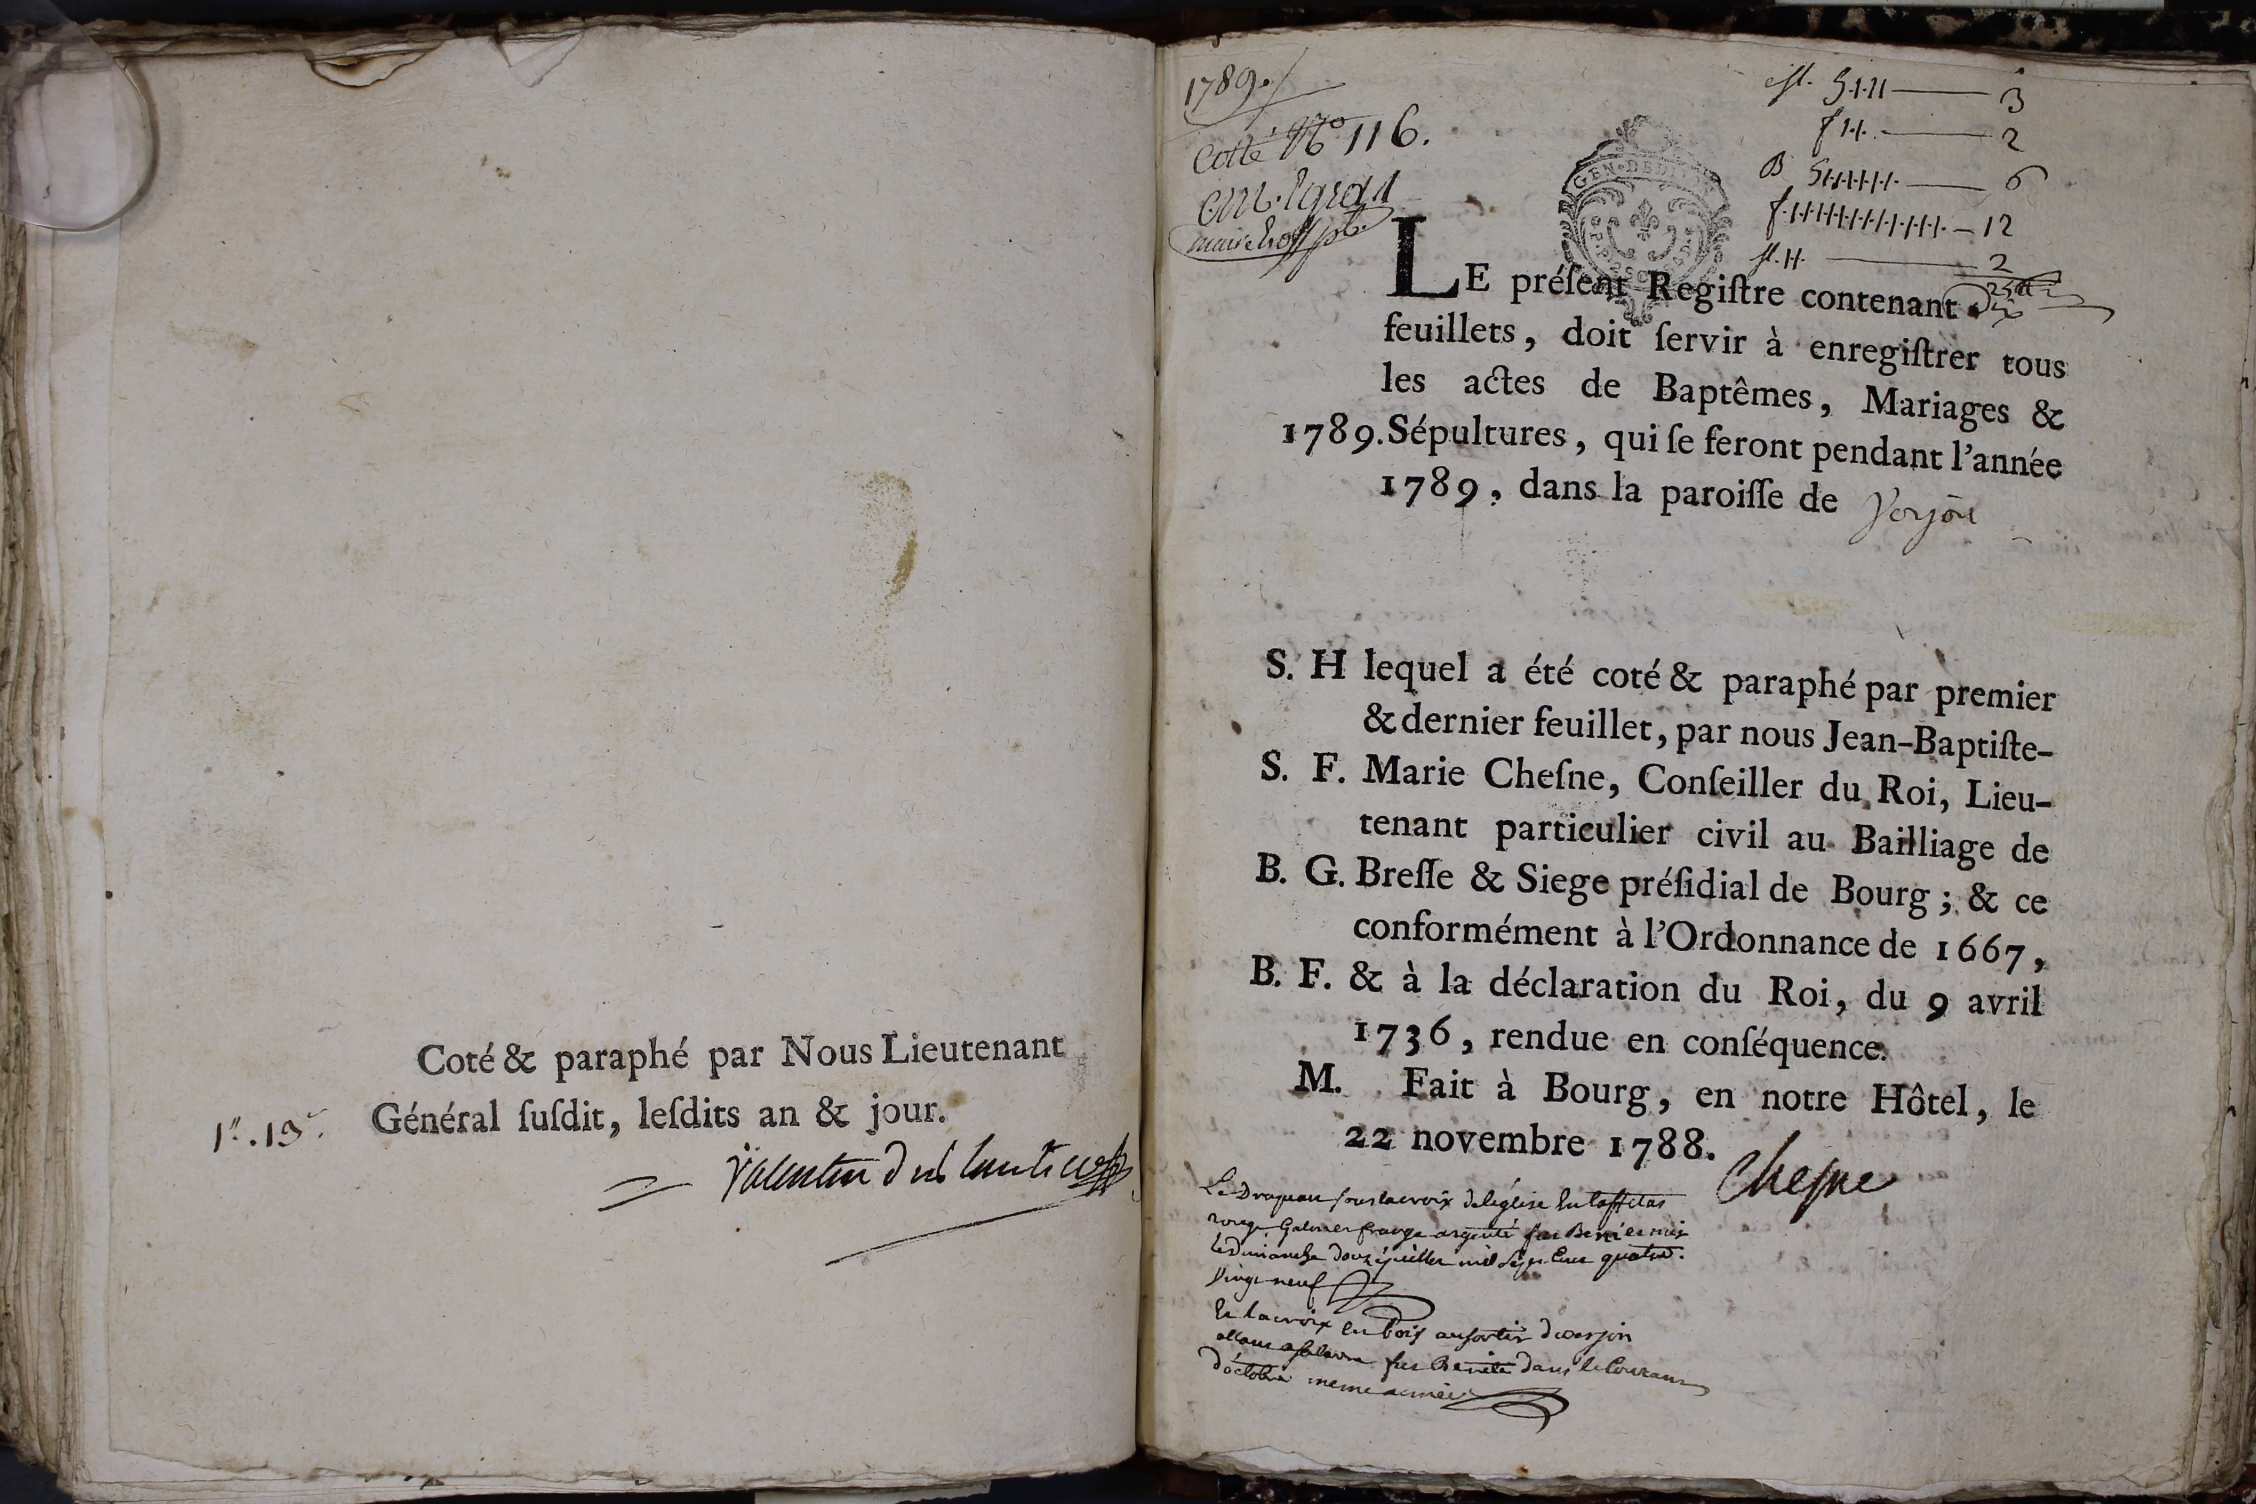 Coté & paraphé par Nous Lieutenant
Général ſuſdit, leſdits an & jour.
1789.
Cotté N° 116.
3
2
B 6
12
2
LE préſent Regiſtre contenant Dix
feuillets, doit ſervir à enregiſtrer tous
les actes de Baptêmes, Mariages &
1789. Sépultures, qui ſe feront pendant l'année
1789, dans la paroiſſe de Verjon
S. H lequel a été coté & paraphé par premier
& dernier feuillet, par nous Jean-Baptiſte-
S. F. Marie Cheſne, Conſeiller du Roi, Lieu-
tenant particulier civil au Bailliage de
B. G. Breſſe & Siege préſidial de Bourg ; & ce
conformément à l'Ordonnance de 1667,
B. F. & à la déclaration du Roi, du 9 avril
1736, rendue en conſéquence.
M. Fait à Bourg, en notre Hôtel, le
22 novembre 1788.
Cheſne
Le Drapeau sous la croix de l'église en taffetas
rouge frange argenté fut Beni
le dimanche douze juillet mil sept cent quatre
vingt neuf
et la croix en bois au sortir de verjon
fut Benite dans le Courant
d'octobre meme année